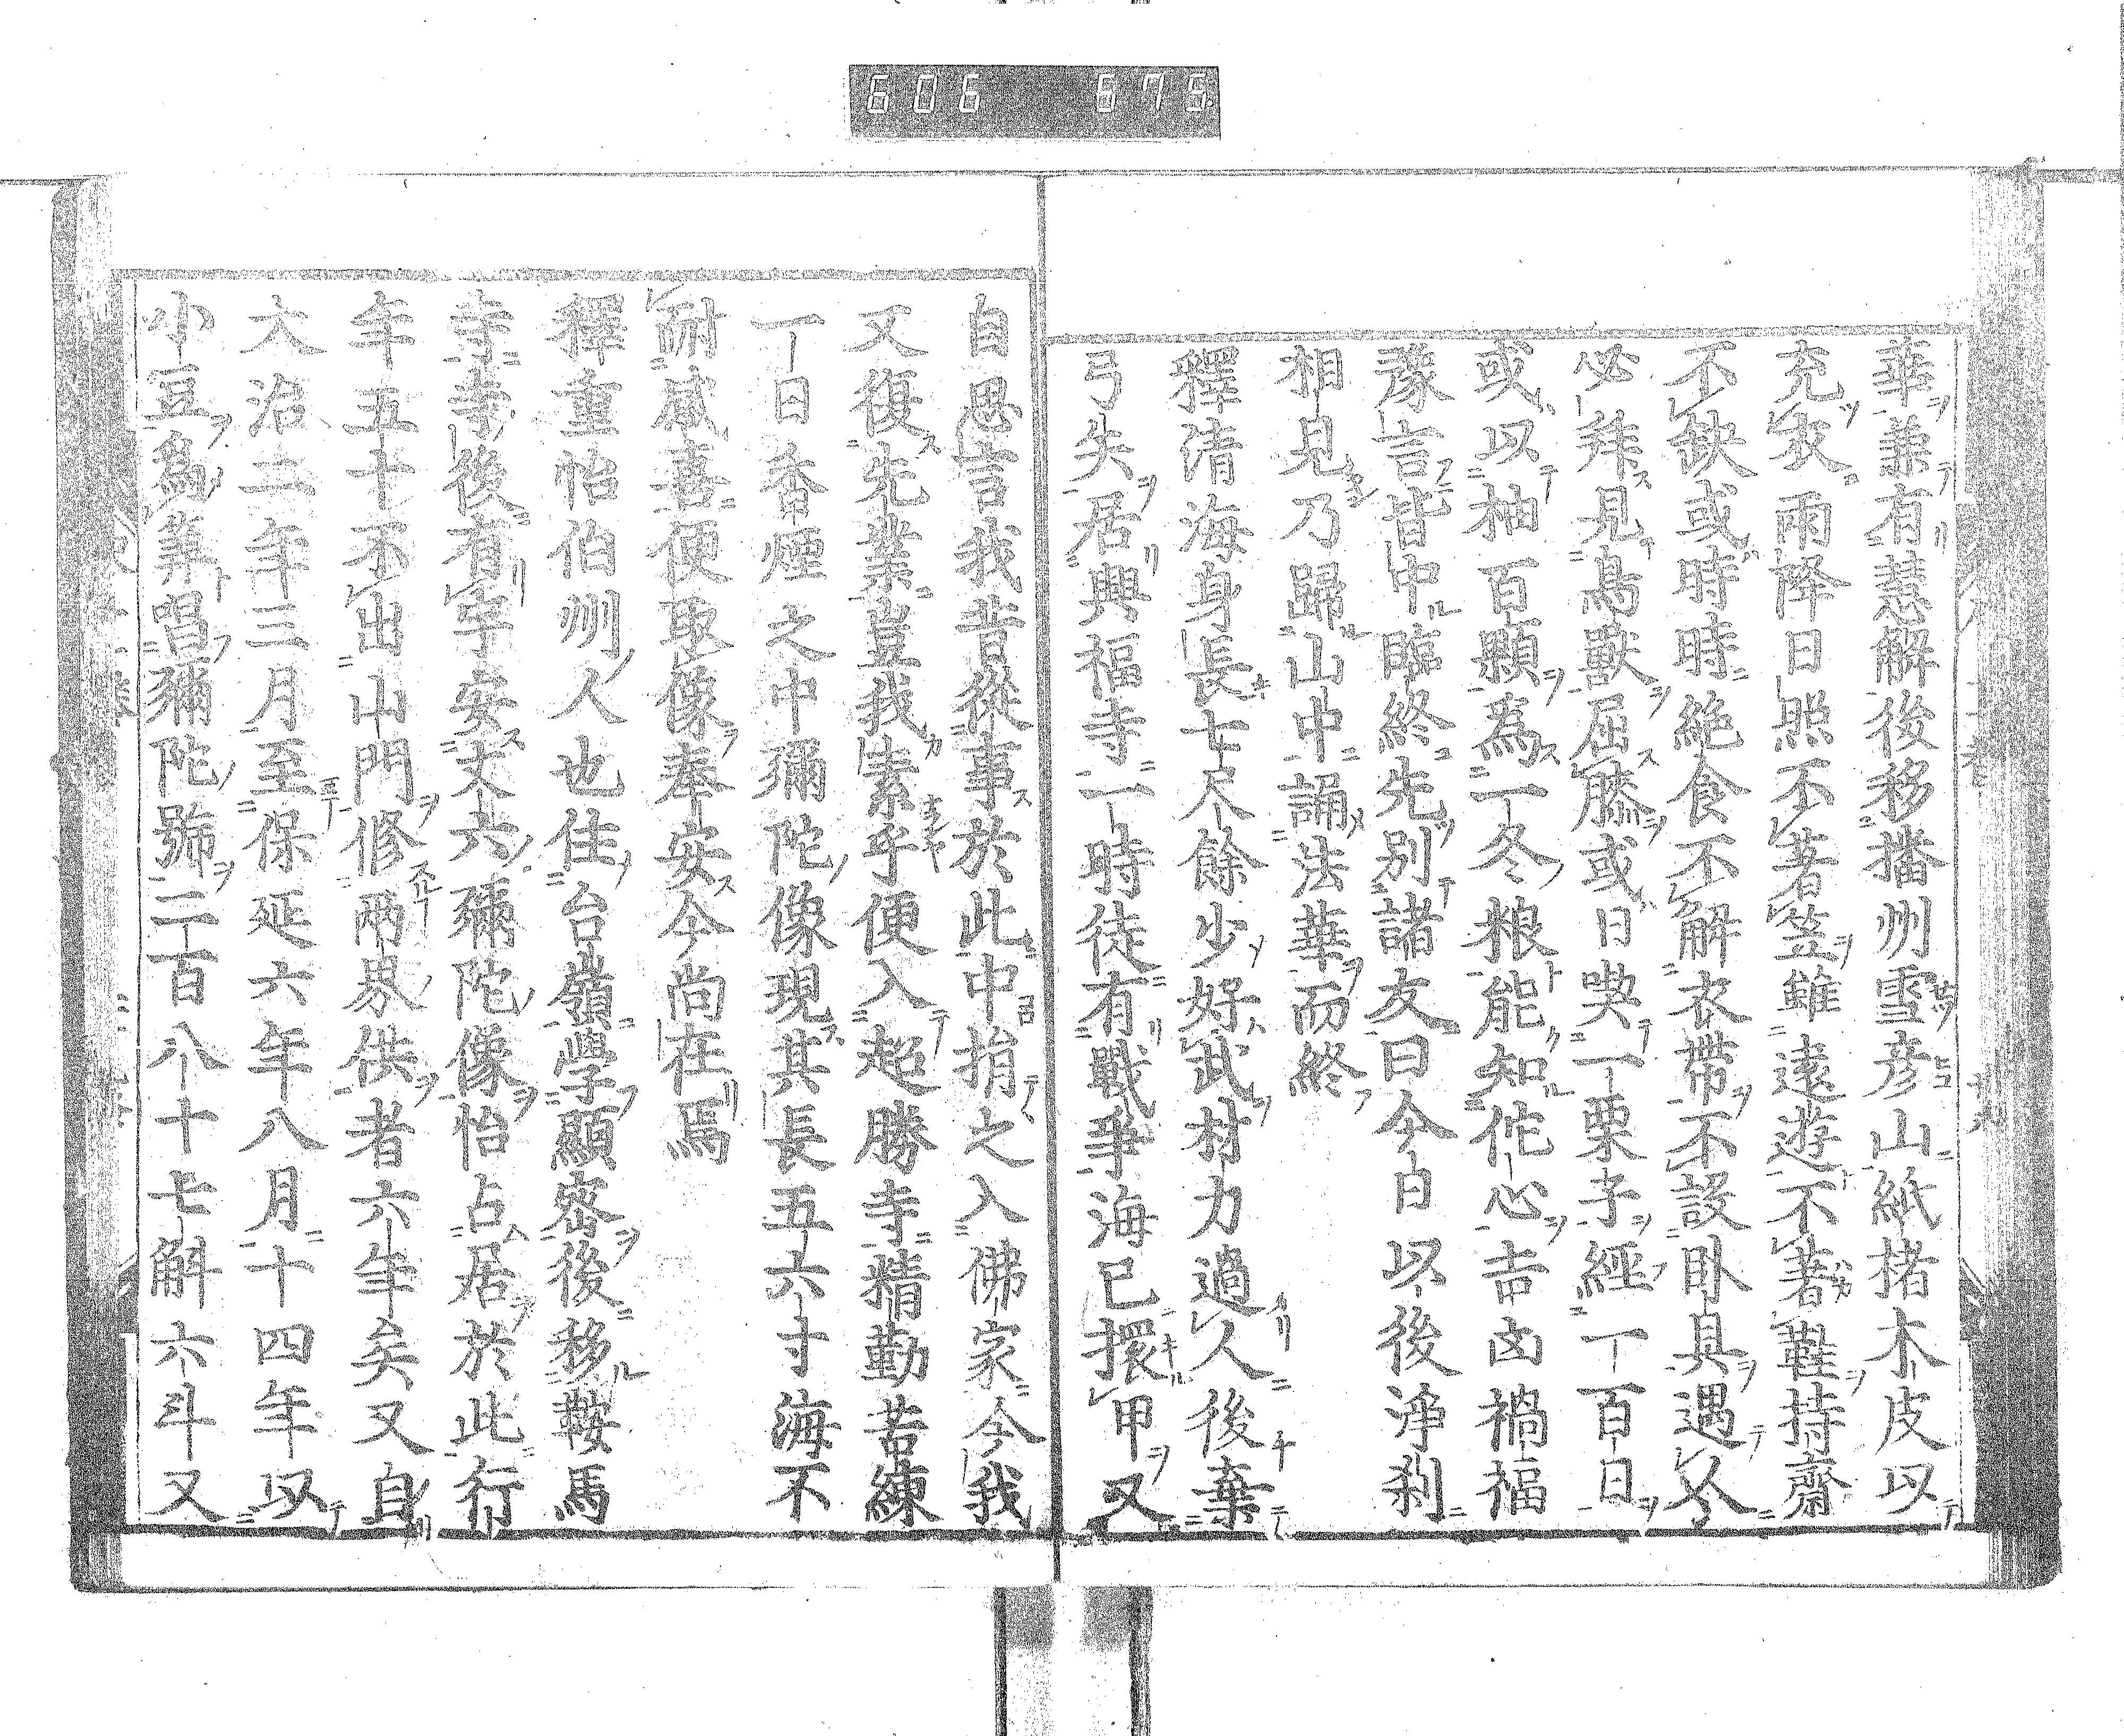 606 675
華兼有慧解後移播州雪彦山紙楮木皮以
充衣雨降日照不著笠雖遠遊不著鞋持齋
不缺或時時絶食不解衣帶不設卧具遇人
必拜見鳥獸屈膝或日喫一栗子經一百日
或以柚百顆爲一冬粮能知佗心吉凶禍福
豫言皆中臨終先別諸友曰今日以後淨刹
相見乃歸山中誦法華而終
釋清海身長七尺餘少好武材力過人後棄
弓矢居興福寺一時徒有戰爭海已擐甲又
自思言我昔從事於此中捐之入佛家今我
又復先業豈我素乎便入超勝寺精勤苦練
一日香煙之中彌陀像現其長五六寸海不
耐感喜便取像奉安今尚在焉
釋重怡伯州人也住台嶺學顯密後移鞍馬
寺寺後有宇安丈六彌陀像怡占居於此行
年五十不出山門修兩界供者六年矣又自
大治二年三月至保延六年八月十四年以
小豆爲筭唱彌陀號二百八十七斛六斗又